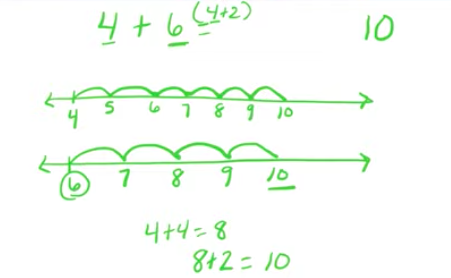 4 + 6 (4+2) 10
4 5 6 7 8 9 10
6 7 8 9 10
4+4=8
8+2=10